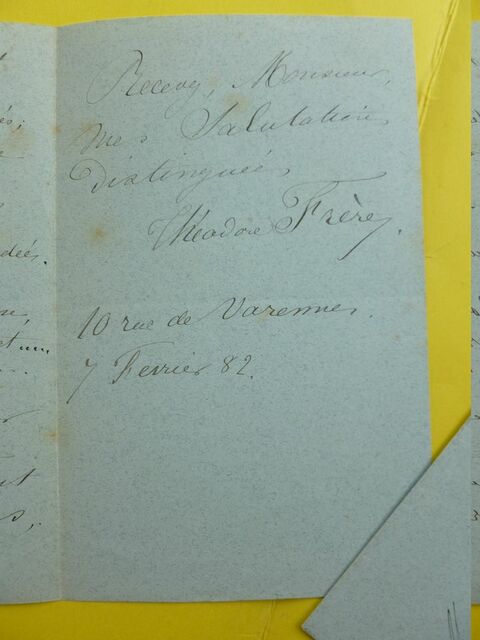 Recevez, Monsieur,
mes Salutations
distinguées,
Théodore Frère
10 rue de Varennes.
7 Fevrier 82.
és;
dées.